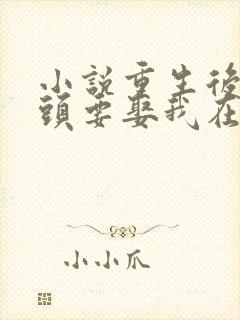 小說重生後
頭要娶我在
小小爪